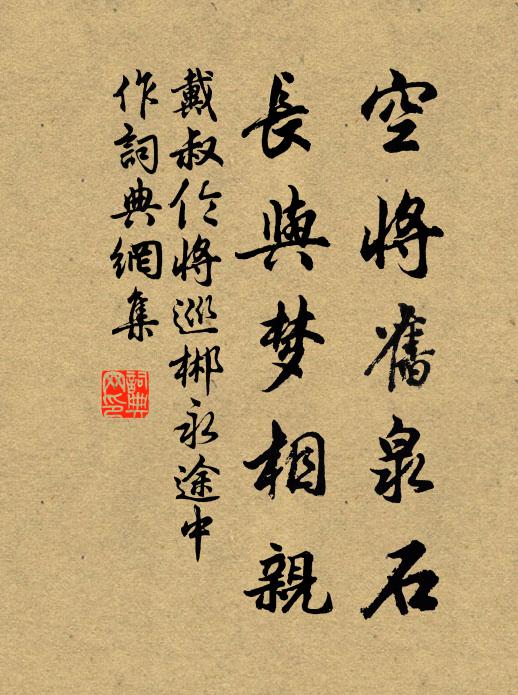 空將舊泉石
長與梦相親
戴叔伦將巡郴永途中
作詞典網集
詞典网印